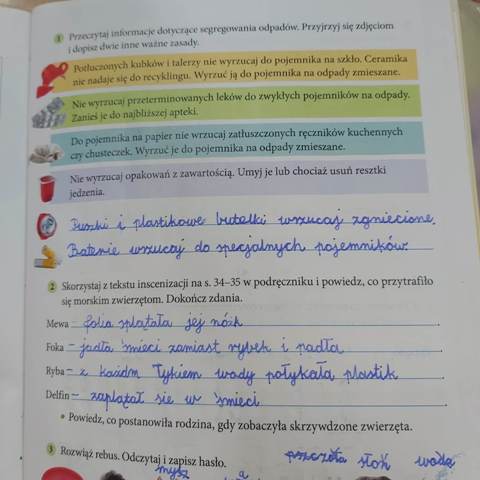 1 Przeczytaj informacje dotyczące segregowania odpadów. Przyjrzyj się zdjęciom
i dopisz dwie inne ważne zasady.
Potłuczonych kubków i talerzy nie wyrzucaj do pojemnika na szkło. Ceramika
nie nadaje się do recyklingu. Wyrzuć ją do pojemnika na odpady zmieszane.
Nie wyrzucaj przeterminowanych leków do zwykłych pojemników na odpady.
Zanieś je do najbliższej apteki.
Do pojemnika na papier nie wrzucaj zatłuszczonych ręczników kuchennych
czy chusteczek. Wyrzuć je do pojemnika na odpady zmieszane.
Nie wyrzucaj opakowań z zawartością. Umyj je lub chociaż usuń resztki
jedzenia.
Puszki i plastikowe butelki wrzucaj zgniecione.
Baterie wrzucaj do specjalnych pojemników.
2 Skorzystaj z tekstu inscenizacji na s. 34–35 w podręczniku i powiedz, co przytrafiło
się morskim zwierzętom. Dokończ zdania.
Mewa – folia splątała jej nóżk
Foka – jadła śmieci zamiast rybek i padła
Ryba – z każdm łykiem wody połykała plastik
Delfin – zaplątał sie w śmieci
• Powiedz, co postanowiła rodzina, gdy zobaczyła skrzywdzone zwierzęta.
3 Rozwiąż rebus. Odczytaj i zapisz hasło. pszczoła słoń woda
mysz a